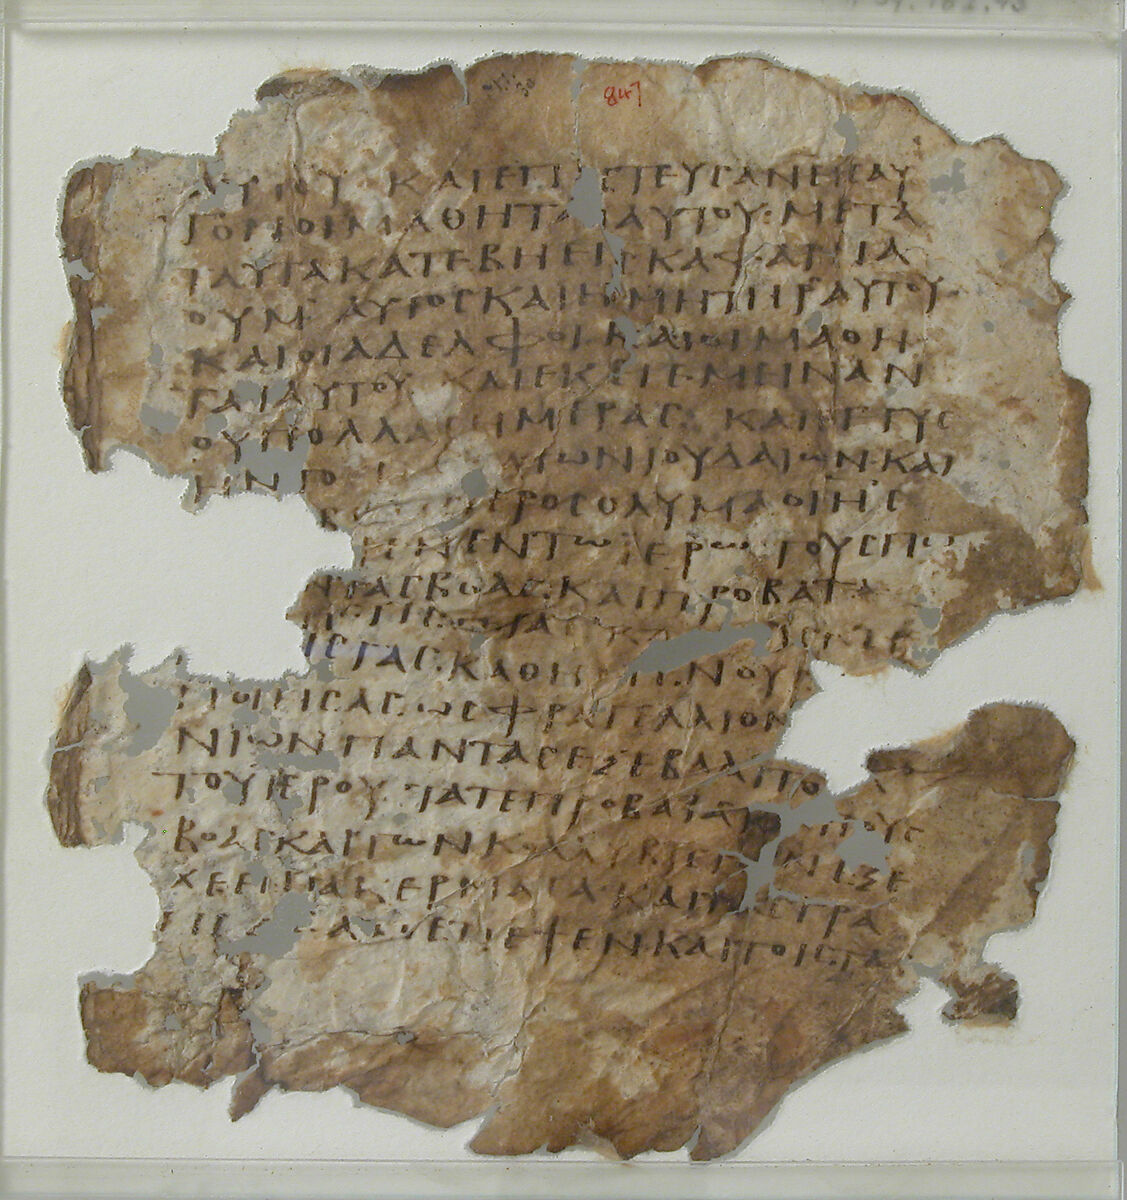 847
ΑΥΤΟΥ ΚΑΙΕΠΙϹΤΕΥϹΑΝΕΙϹΑΥ
ΤΟΝΟΙΜΑΘΗΤΑΙΑΥΤΟΥ: ΜΕΤΑ
ΤΑΥΤΑΚΑΤΕΒΗΕΙϹΚΑΦΑΡΝΑ
ΟΥΜ ΑΥΤΟϹΚΑΙΗΜΗΤΗΡΑΥΤΟΥ
ΚΑΙΟΙΑΔΕΛΦΟΙΚΑΙΟΙΜΑΘΗ
ΤΑΙΑΥΤΟΥ ΚΑΙΕΚΕΙΕΜΕΙΝΑΝ
ΟΥΠΟΛΛΑϹΗΜΕΡΑϹ· ΚΑΙΕΓΓΥϹ
ΗΝΤΟ ΤΩΝΙΟΥΔΑΙΩΝ·ΚΑΙ
ΙΕΡΟϹΟΛΥΜΑΟΙΗϹ
ΕΝΤΩΙΕΡΩΤΟΥϹΠΩ
ΝΤΑϹΒΟΑϹ·ΚΑΙΠΡΟΒΑΤΑ
ΠΕΡΙϹΤΕΡΑϹ
ΙϹΤΑϹ·ΚΑΘΗΜΕΝΟΥϹ
ΠΟΙΗϹΑϹ·ΩϹΦΡΑΓΕΛΛΙΟΝ
ΝΙΩΝΠΑΝΤΑϹΕΞΕΒΑΛΕΝ
ΤΟΥΙΕΡΟΥ·ΤΑΤΕΠΡΟΒΑΤΑ ΤΟΥϹ
ΒΟΑϹΚΑΙΤΩΝΚΟΛΛΥΒΙϹΤΩΝΕΞΕ
ΧΕΕΝΤΑΚΕΡΜΑΤΑ·ΚΑΙΤΑϹΤΡΑ
ΕΨΕΝ·ΚΑΙΤΟΙϹΤΑϹ